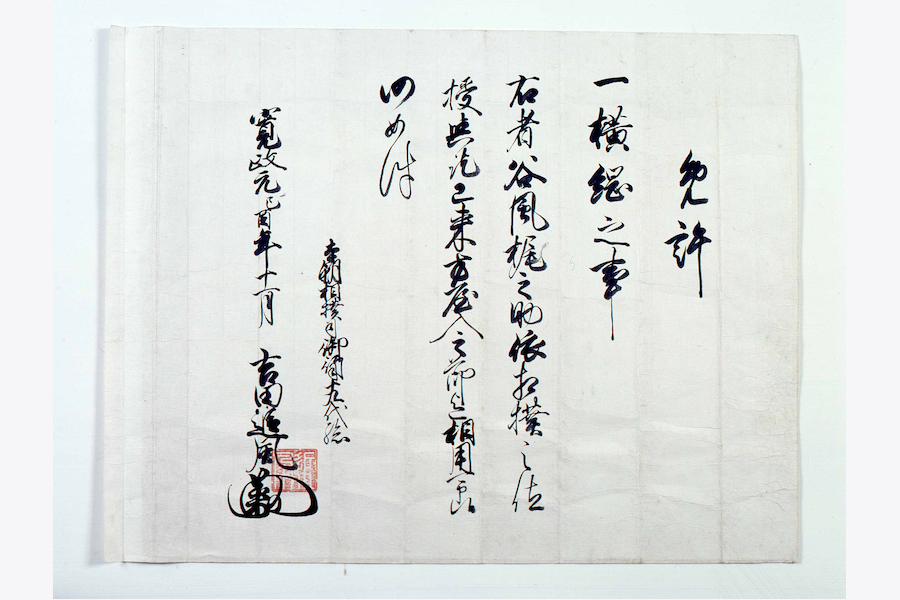 免許
一横綱之事
右者谷風梶之助依相撲之位
授与訖已来方屋入之節迄相用可申
仍如件
本朝相撲司御行司十九代孫
寛政元己酉年十一月 吉田追風